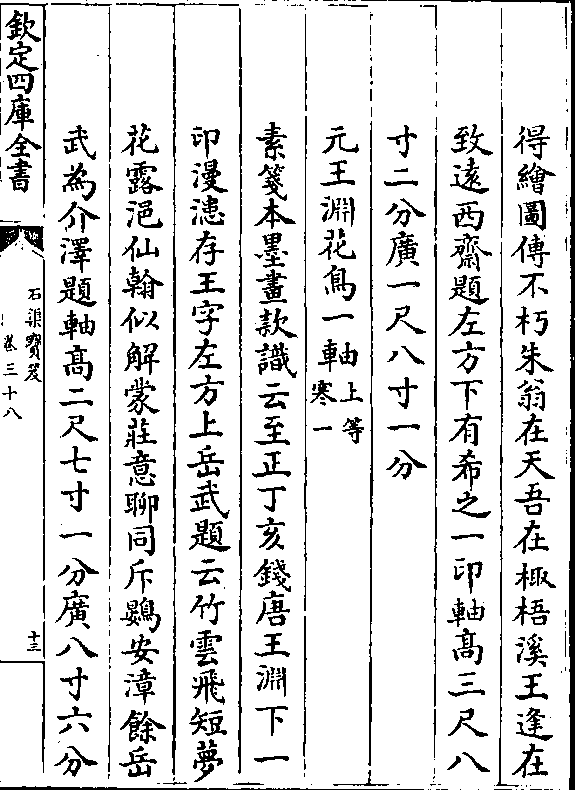 得繪圖傳不朽朱翁在天吾在棷梧溪王逢在
致遠西齋題左方下有希之一印軸高三尺八
寸二分廣一尺八寸一分
元王淵花鳥一軸上等寒一
素箋本墨畫款識云至正丁亥錢唐王淵下一
印漫漶存王字左方上岳武題云竹雲飛短夢
花露浥仙翰似解蒙莊意聊同斥鷃安漳餘岳
武為介澤題軸高二尺七寸一分廣八寸六分
欽定四庫全書
石渠寶笈
卷三十八
十三